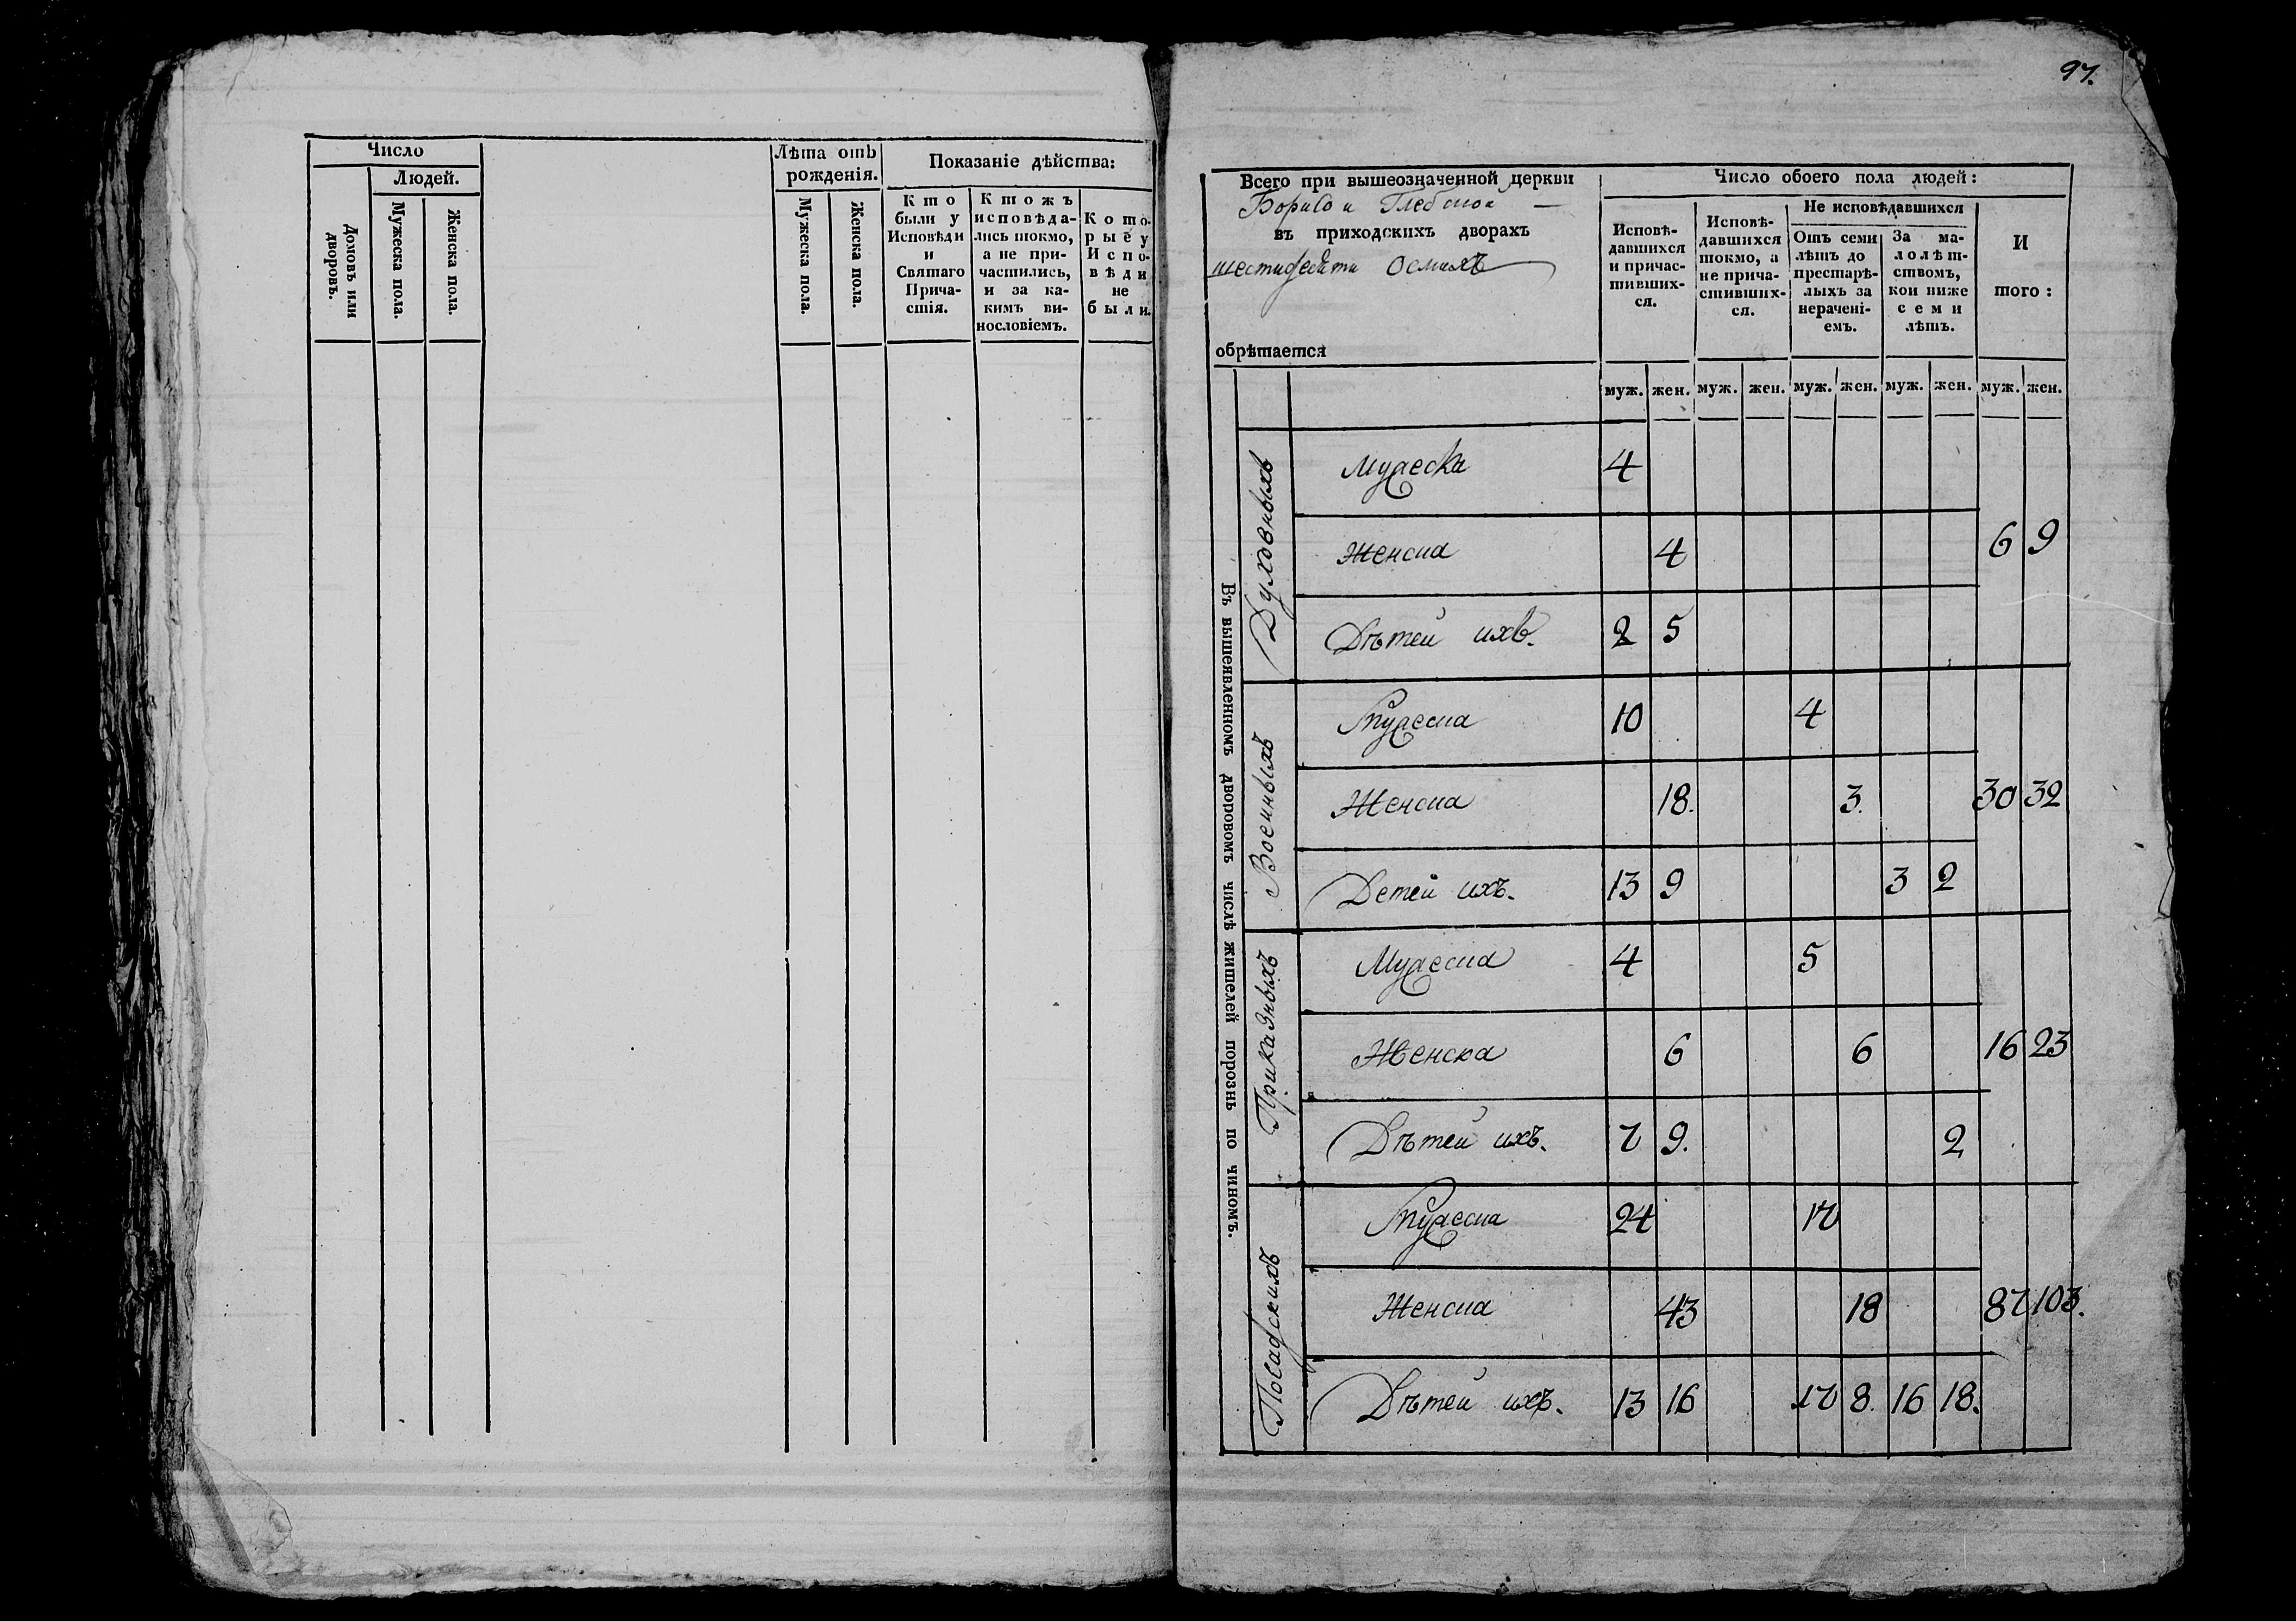 Число
Людей.
Домовъ или
дворовъ.
Мужеска пола.
Женска пола.
Лѣта отъ
рожденія.
Мужеска пола.
Женска пола.
Показаніе дѣйства:
Кто
были у
Исповѣди
и
Святаго
Прича-
стія.
Ктожъ
исповѣда-
лись токмо,
а не при-
частились,
и за ка-
кимъ ви-
нословіемъ.
Кото-
рые у
Испо-
вѣди
не
были.
97.
Всего при вышеозначенной церкви
Борисо и Глебской —
въ приходскихъ дворахъ
шестидесяти осмихъ
обрѣтается
Число обоего пола людей:
Исповѣ-
давшихся
и причас-
тивших-
ся.
Исповѣ-
давшихся
токмо, а
не прича-
стивших-
ся.
Не исповѣдавшихся
Отъ семи
лѣтъ до
престарѣ-
лыхъ за
нерачені-
емъ.
За ма-
лолѣт-
ствомъ,
кои ниже
семи
лѣтъ.
И
того:
муж. жен. муж. жен. муж. жен. муж. жен. муж. жен.
Въ вышеявленномъ дворовомъ числѣ жителей порознь по чиномъ.
Духовныхъ
Мужеска 4
Женска 4 6 9
Дѣтей ихъ. 2 5
Военныхъ
Мужеска 10 4
Женска 18. 3. 30 32
Детей ихъ. 13 9 3 2
Приказныхъ
Мужеска 4 5
Женска 6 6 16 23
Дѣтей ихъ. 7 9. 2
Посадскихъ
Мужеска 24 17
Женска 43 18 87 103.
Дѣтей ихъ. 13 16 17 8. 16 18.